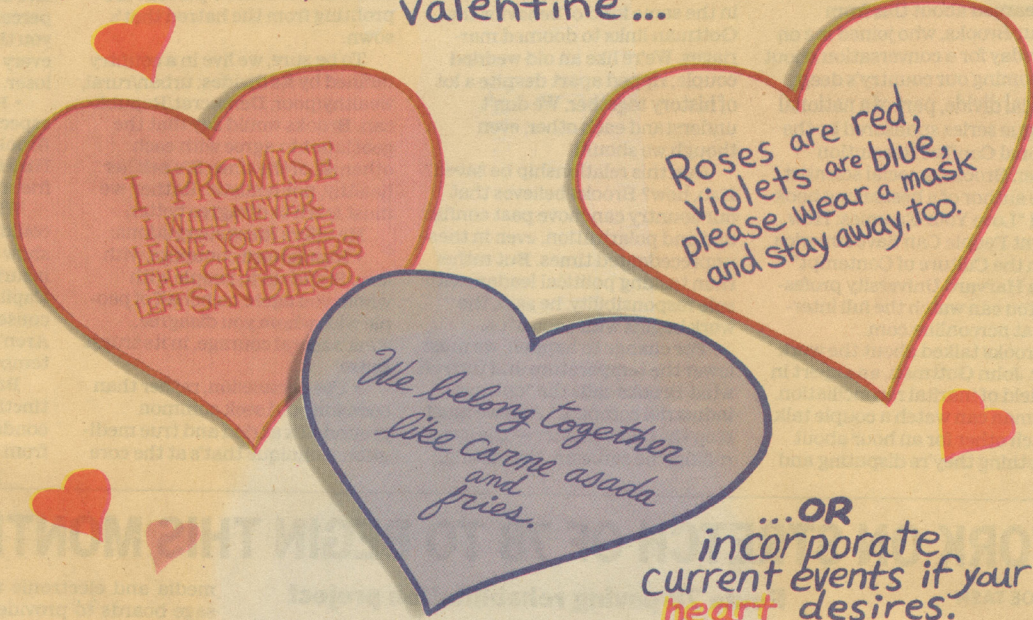 valentine...
I PROMISE
I WILL NEVER
LEAVE YOU LIKE
THE CHARGERS
LEFT SAN DIEGO.
Roses are red,
violets are blue,
please wear a mask
and stay away, too.
We belong together
like carne asada
and
fries.
...OR
incorporate
current events if your
heart desires.